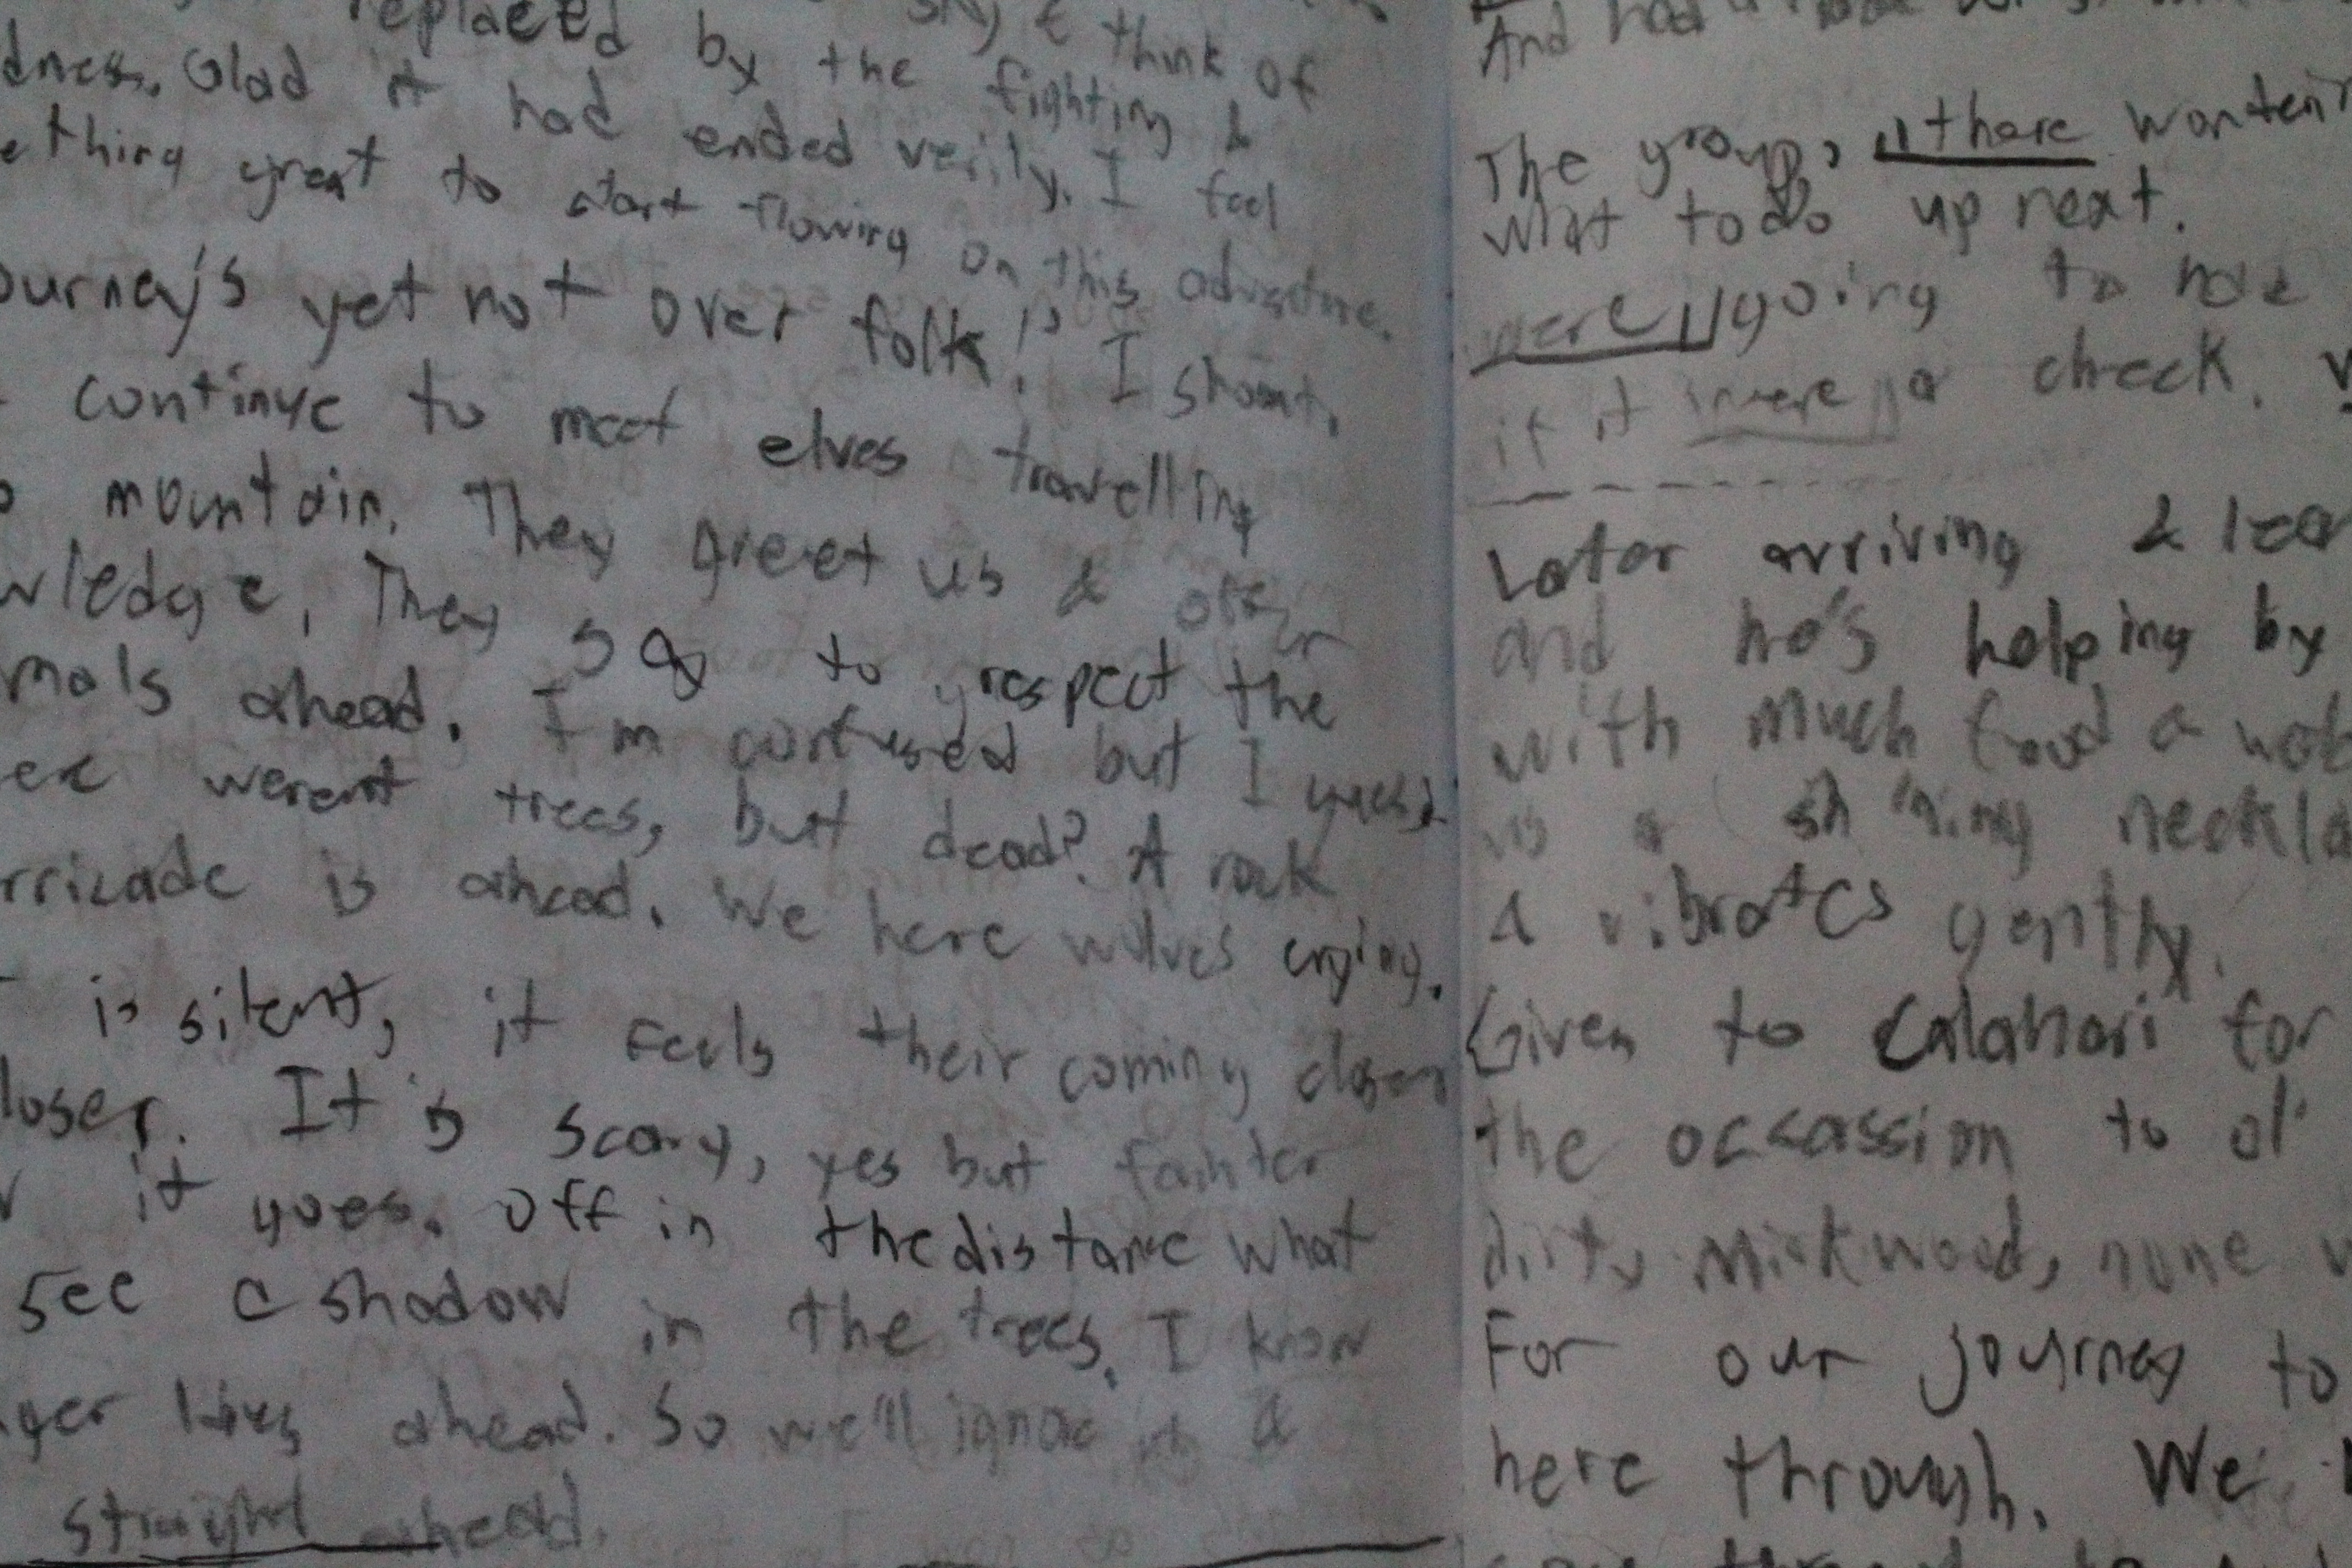 replaced by the fighting &
sky & think of
dness. Glad it had ended verily. I feel
ething great to start flowing on this adventure.
ourney's yet not over folk!" I shout.
continue to meet elves travelling
mountain. They greet us & offer
wledge. They say to respect the
mals ahead. I'm confused but I guess
ere werent trees, but dead? A rock
rricade is ahead. We here wolves crying.
is silent, it feels their coming closer
loser. It's scary, yes but fainter
it goes. Off in the distance what
see a shadow in the trees. I know
ger lives ahead. So we'll ignore it &
straight ahead.
And had a
The group, there wonten
what to do up next.
were going to
if it were a check.
Later arriving &
and he's helping by
with much food a
is a shining neckla
& vibrates gently.
Given to Calahari for
the occassion to ol'
dirty Mirkwood, none
For our journey to
here through. We